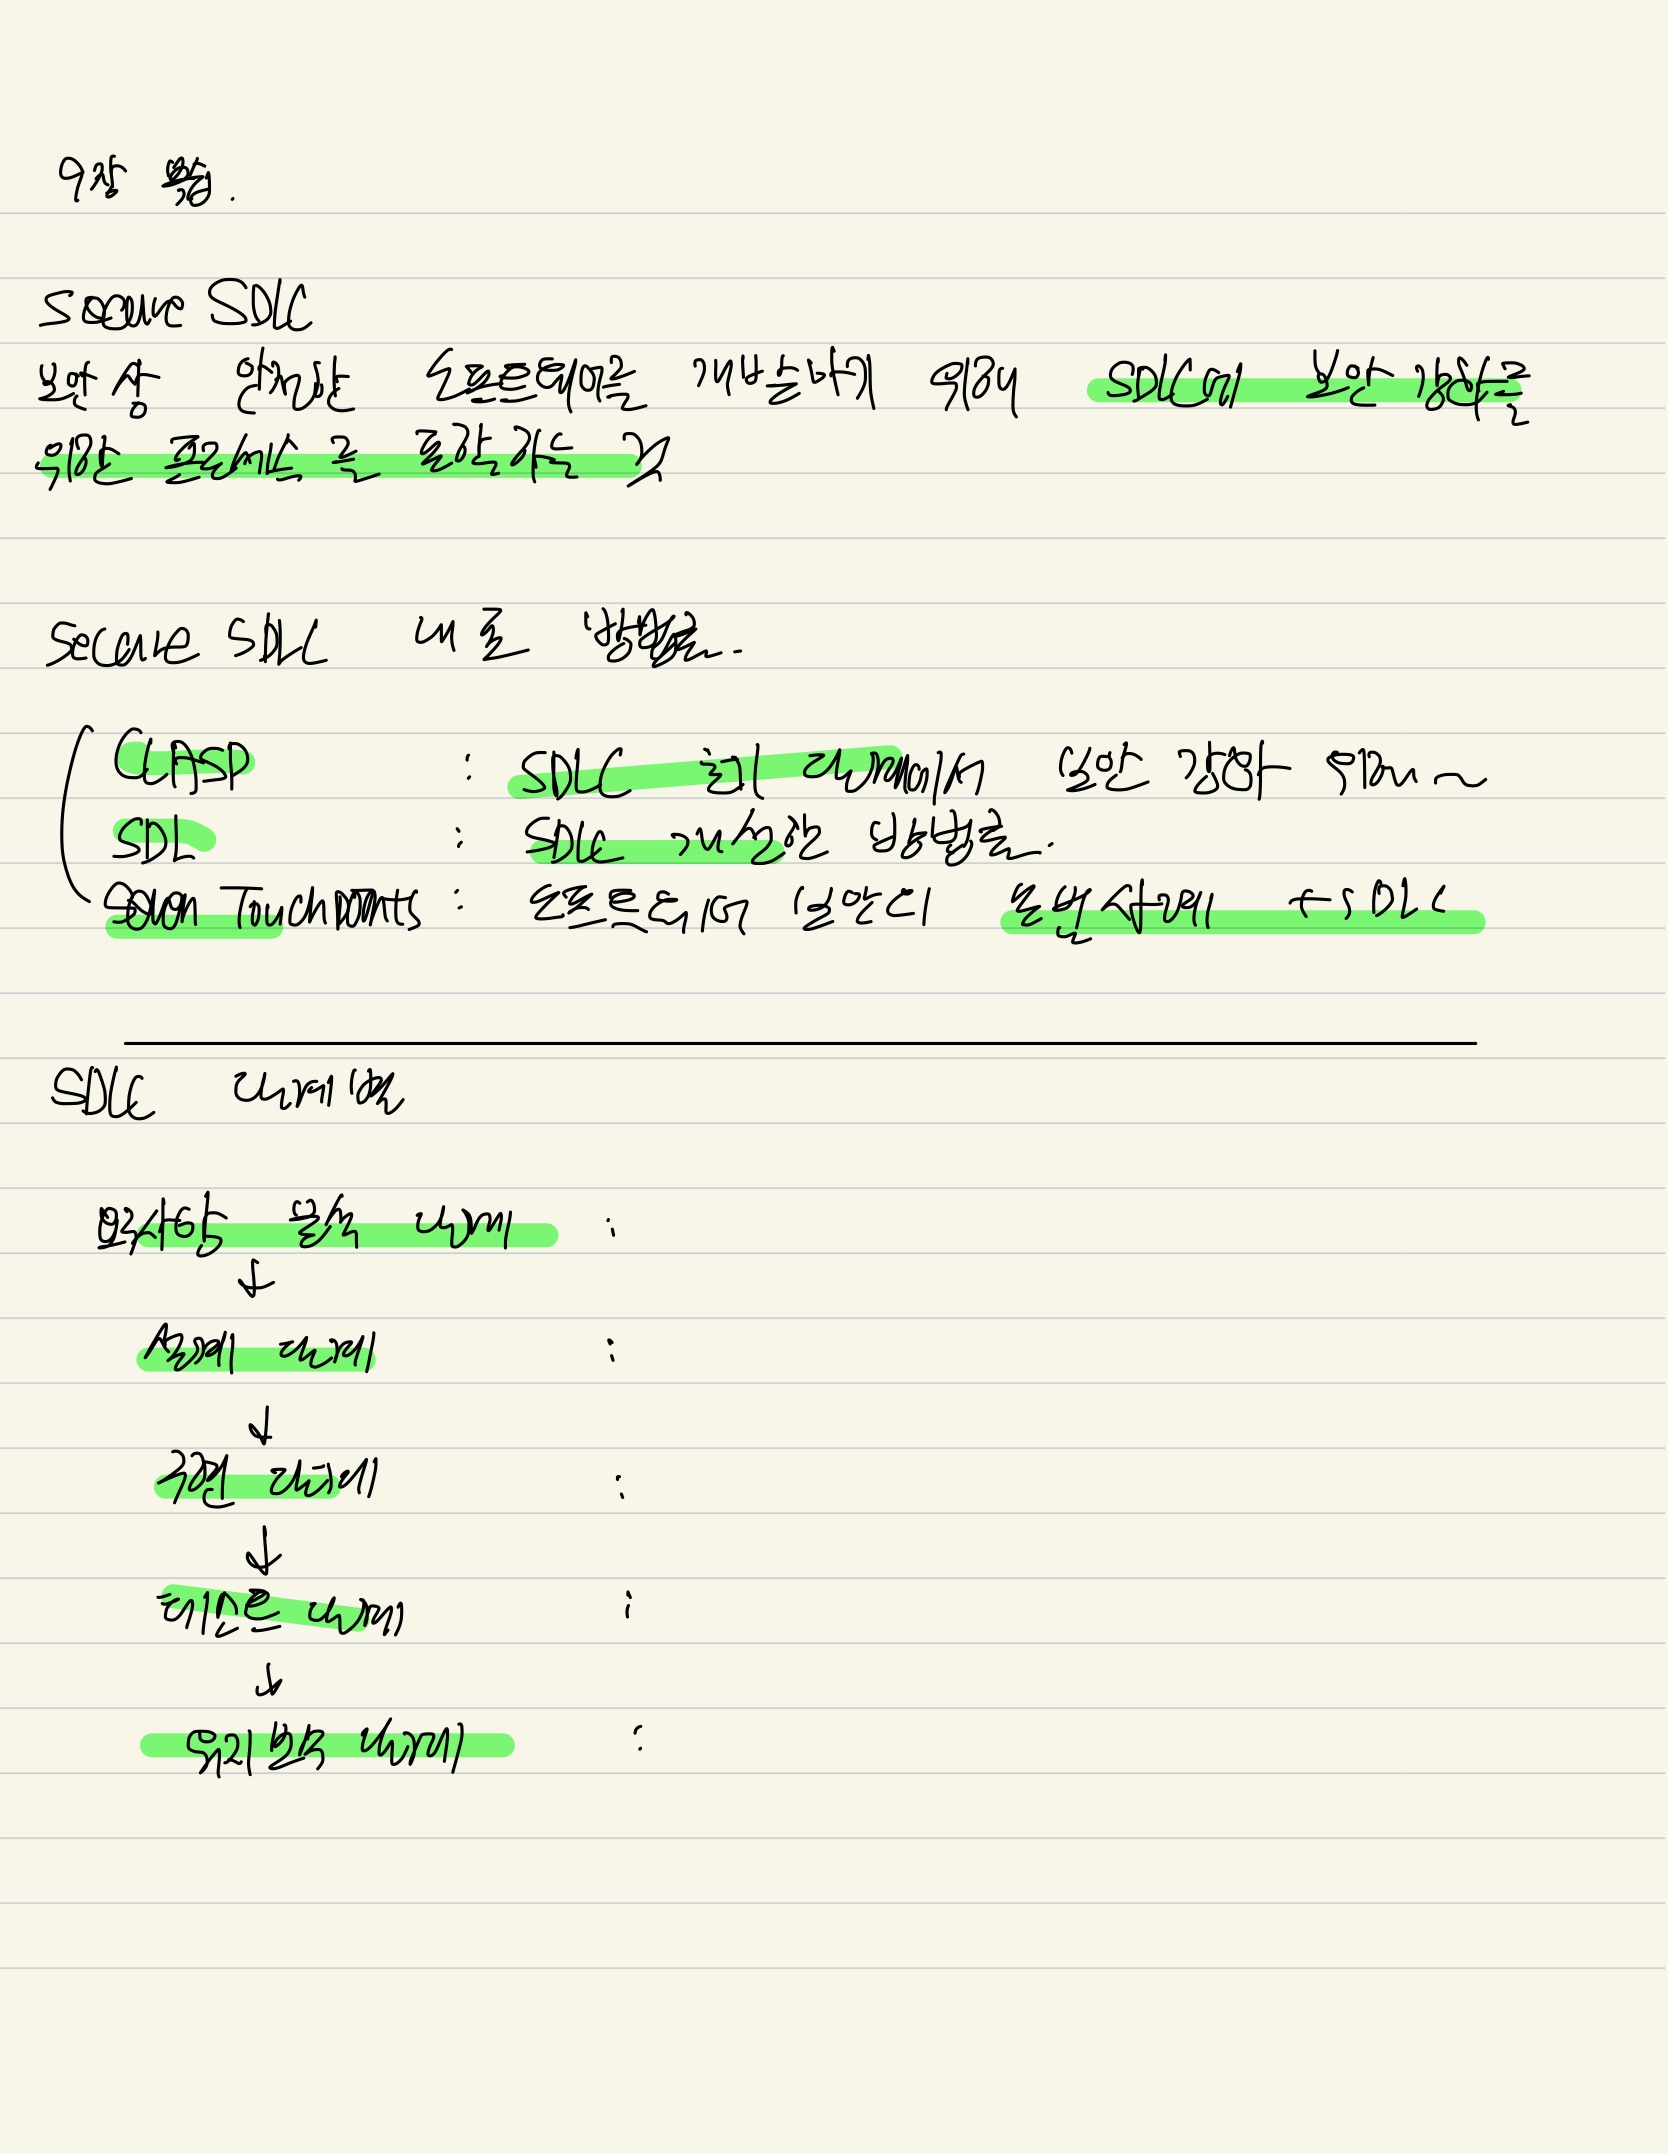 9장 복습.
Secure SDLC
보안 상 안전한 소프트웨어를 개발하기 위해 SDLC에 보안 강화를
위한 프로세스를 포함하는 것
Secure SDLC 방법론.
CLASP : SDLC 초기 단계에서 보안 강화 위해 ~
SDL : SDLC 개선한 방법론.
Seven Touchpoints : 소프트웨어 보안의 모범사례 + SDLC
SDLC 단계별
요구사항 분석 단계 :
↓
설계 단계 :
↓
구현 단계 :
↓
테스트 단계 :
↓
유지보수 단계 :